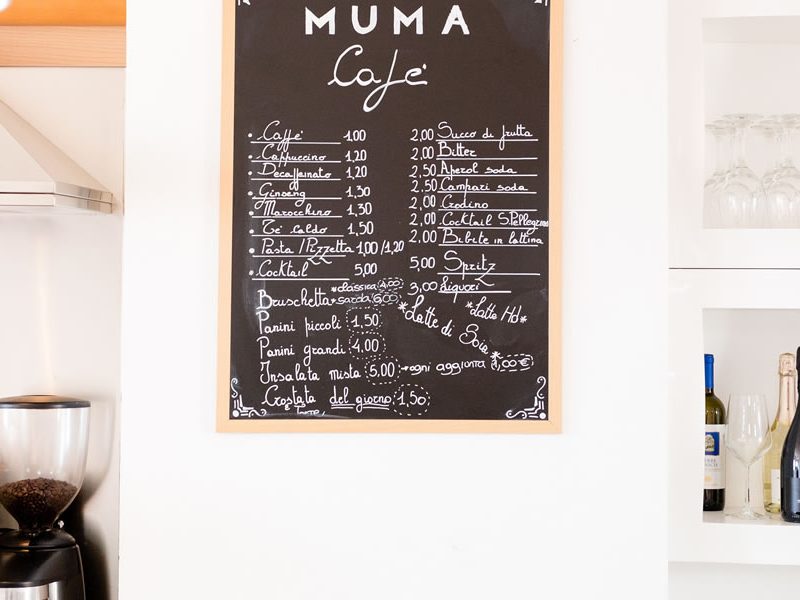 MUMA
Cafe'
• Caffe' 1,00
• Cappuccino 1,20
• Decaffeinato 1,20
• Ginseng 1,30
• Marocchino 1,30
• Te' caldo 1,50
• Pasta/Pizzetta 1,00/1,20
• Cocktail 5,00
Bruschetta *classica 4,00
*sarda 6,00
Panini piccoli 1,50
Panini grandi 4,00
Insalata mista 5,00 → ogni aggiunta 1,00€
Crostata del giorno 1,50
e
2,00 Succo di frutta
2,00 Bitter
2,50 Aperol soda
2,50 Campari soda
2,00 Crodino
2,00 Cocktail S.Pellegrino
2,00 Bibite in lattina
5,00 Spritz
3,00 Liquori
*Latte di Soia*
*Latte Hd*